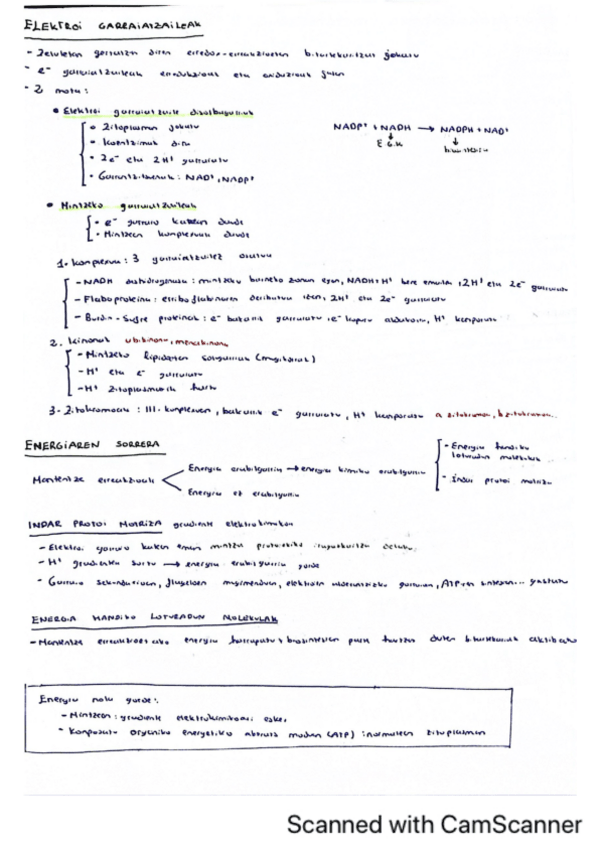 ELEKTROI GARRAIATZAILEAK
- Zeluletan gertatzen diren erredox-erreakzioetan bitartekaritzan jokatu
- e⁻ garraiatzaileak erreduzitu eta oxidatu
- 2 mota:
• Elektroi garraiatzaile disolbagarriak
• Zitoplasman jokatu
• Koentzimak dira
• 2e⁻ eta 2H⁺ garraiatu
• Garrantzitsuenak: NAD⁺, NADP⁺
NADP⁺ + NADH → NADPH + NAD⁺
• Mintzeko garraiatzaileak
• e⁻ garraio katean daude
• Mintzean konplexuak daude
1. konplexu: 3 garraiatzailez osatua
- NADH deshidrogenasa: mintzeko barneko zonan egon, NADH+H⁺ bere emaile, 2H⁺ eta 2e⁻ garraiatu
- Flaboproteina: erriboflabinaren deribatua izan, 2H⁺ eta 2e⁻ garraiatu
- Burdin-Sufre proteinak: e⁻ bakarrik garraiatu, H⁺ kanporatu
2. kinonak ubikinona, menakinona
- Mintzeko lipidetan
- H⁺ eta e⁻ garraiatu
- H⁺ zitoplasmatik hartu
3. Zitokromoak: III. konplexuan, bakarrik e⁻ garraiatu, H⁺ kanporatu a zitokromoa, b zitokromoa...
ENERGIAREN SORRERA
Mantentze erreakzioak
Energia erabilgarria → energia kimiko erabilgarria
Energia ez erabilgarria
- Energia handiko loturadun molekulak
- Indar protoi motriza
INDAR PROTOI MOTRIZA gradiente elektrokimikoa
- Elektroi garraio katean eman mintza protoiekiko iragazkaitza delako.
- H⁺ gradientea sortu → energia erabilgarria gorde
- Garraio sekundarioan, flageloen mugimenduan, elektroien alderantzizko garraioan, ATPren sintesian... gastatu
ENERGIA HANDIKO LOTURADUN MOLEKULAK
- Mantentze energia biosintesian parte hartzen duten bitartekariak aktibatu
Energia nola gorde:
- Mintzean: gradiente elektrokimikoari esker
- Konposatu organiko energetiko moduan (ATP): normalean zitoplasman
Scanned with CamScanner